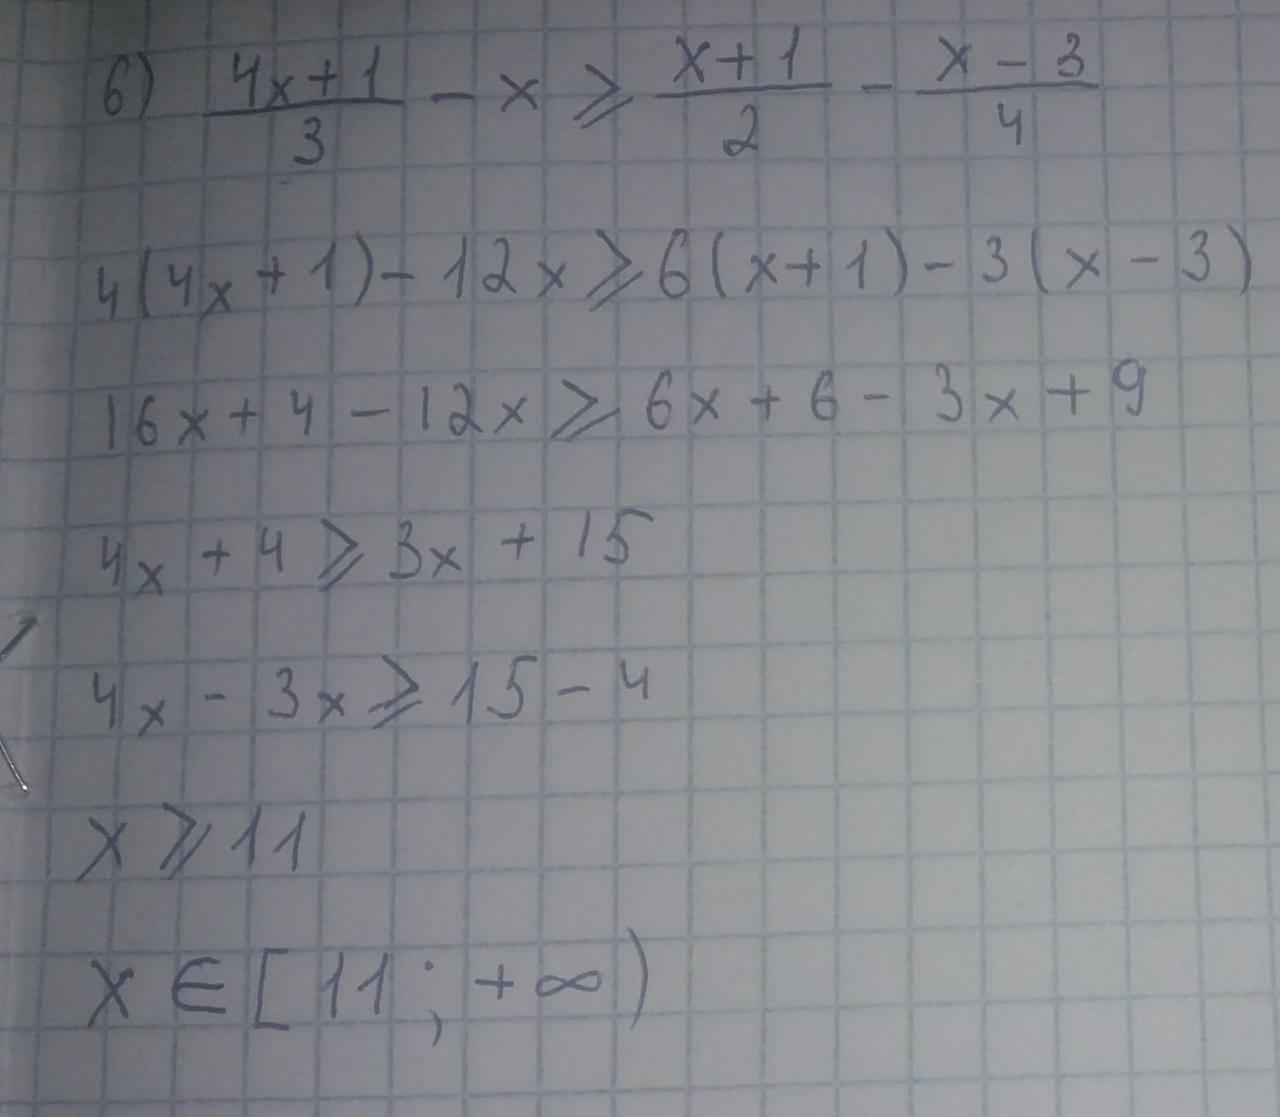 6) (4x+1)/3 - x ⩾ (x+1)/2 - (x-3)/4
4(4x+1)-12x⩾6(x+1)-3(x-3)
16x+4-12x⩾6x+6-3x+9
4x+4⩾3x+15
4x-3x⩾15-4
x⩾11
x∈[11;+∞)